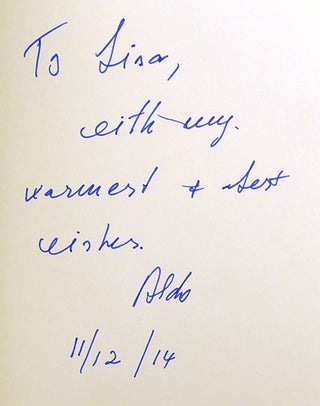 To Lisa,
with my
warmest + best
wishes.
Aldo
11/12/14